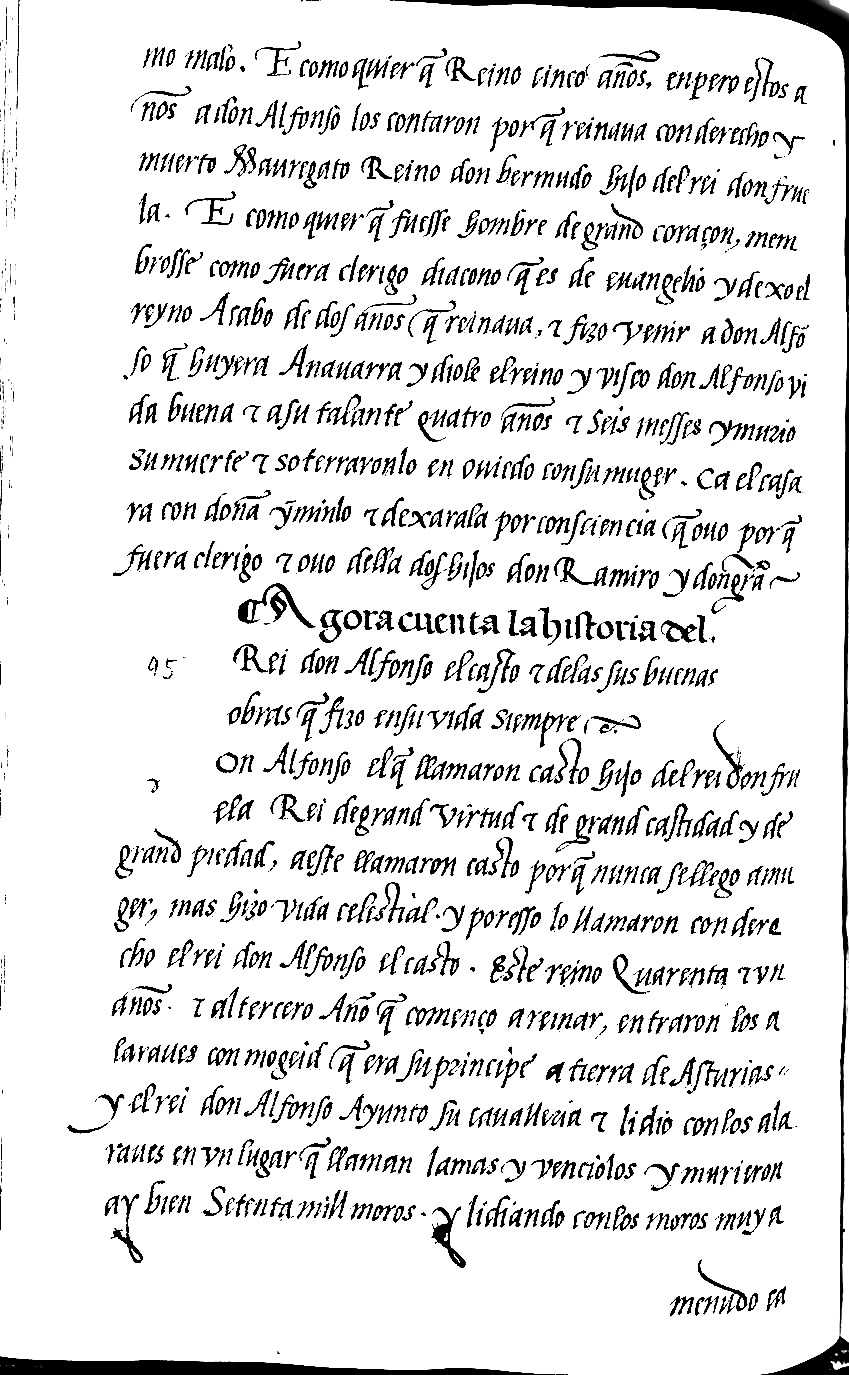 mo malo. E como quier q̃ Reino cinco años. enpero estos a
ños a don Alfonso los contaron por q̃ reinaua con derecho y
muerto Mauregato Reino don bermudo hijo del rei don frue
la. E como quier q̃ fuesse hombre de grand coraçon, mem
brosse como fuera clerigo diacono q̃ es de euangelio y dexo el
reyno Acabo de dos años q̃ reinaua, ⁊ fizo venir a don Alfõ
so q̃ huyera Anauarra y diole el reino y visco don Alfonso vi
da buena ⁊ a su talante quatro años ⁊ Seis messes y murio
su muerte ⁊ soterraronlo en ouiedo con su muger. Ca el casa
ra con doña ỹminlo ⁊ dexarala por consciencia q̃ ouo por q̃
fuera clerigo ⁊ ouo della dos hijos don Ramiro y don grã~
¶ Agora cuenta la historia del.
95 Rei don Alfonso el casto ⁊ de las sus buenas
obras q̃ fizo en su vida siempre
On Alfonso el q̃ llamaron casto hijo del rei don fru
ela Rei de grand virtud ⁊ de grand castidad y de
grand piedad, a este llamaron casto porq̃ nunca se llego a mu
ger, mas hizo vida celestial. y por esso lo llamaron con dere
cho el rei don Alfonso el casto. Este reino Quarenta ⁊ vn
años. ⁊ al tercero Año q̃ començo a reinar, entraron los a
laraues con mogeid q̃ era su principe a tierra de Asturias
y el rei don Alfonso Ayunto su caualleria ⁊ lidio con los ala
raues en vn lugar q̃ llaman lamas y venciolos y murieron
ay bien Setenta mill moros. y lidiando con los moros muy a
menudo ca